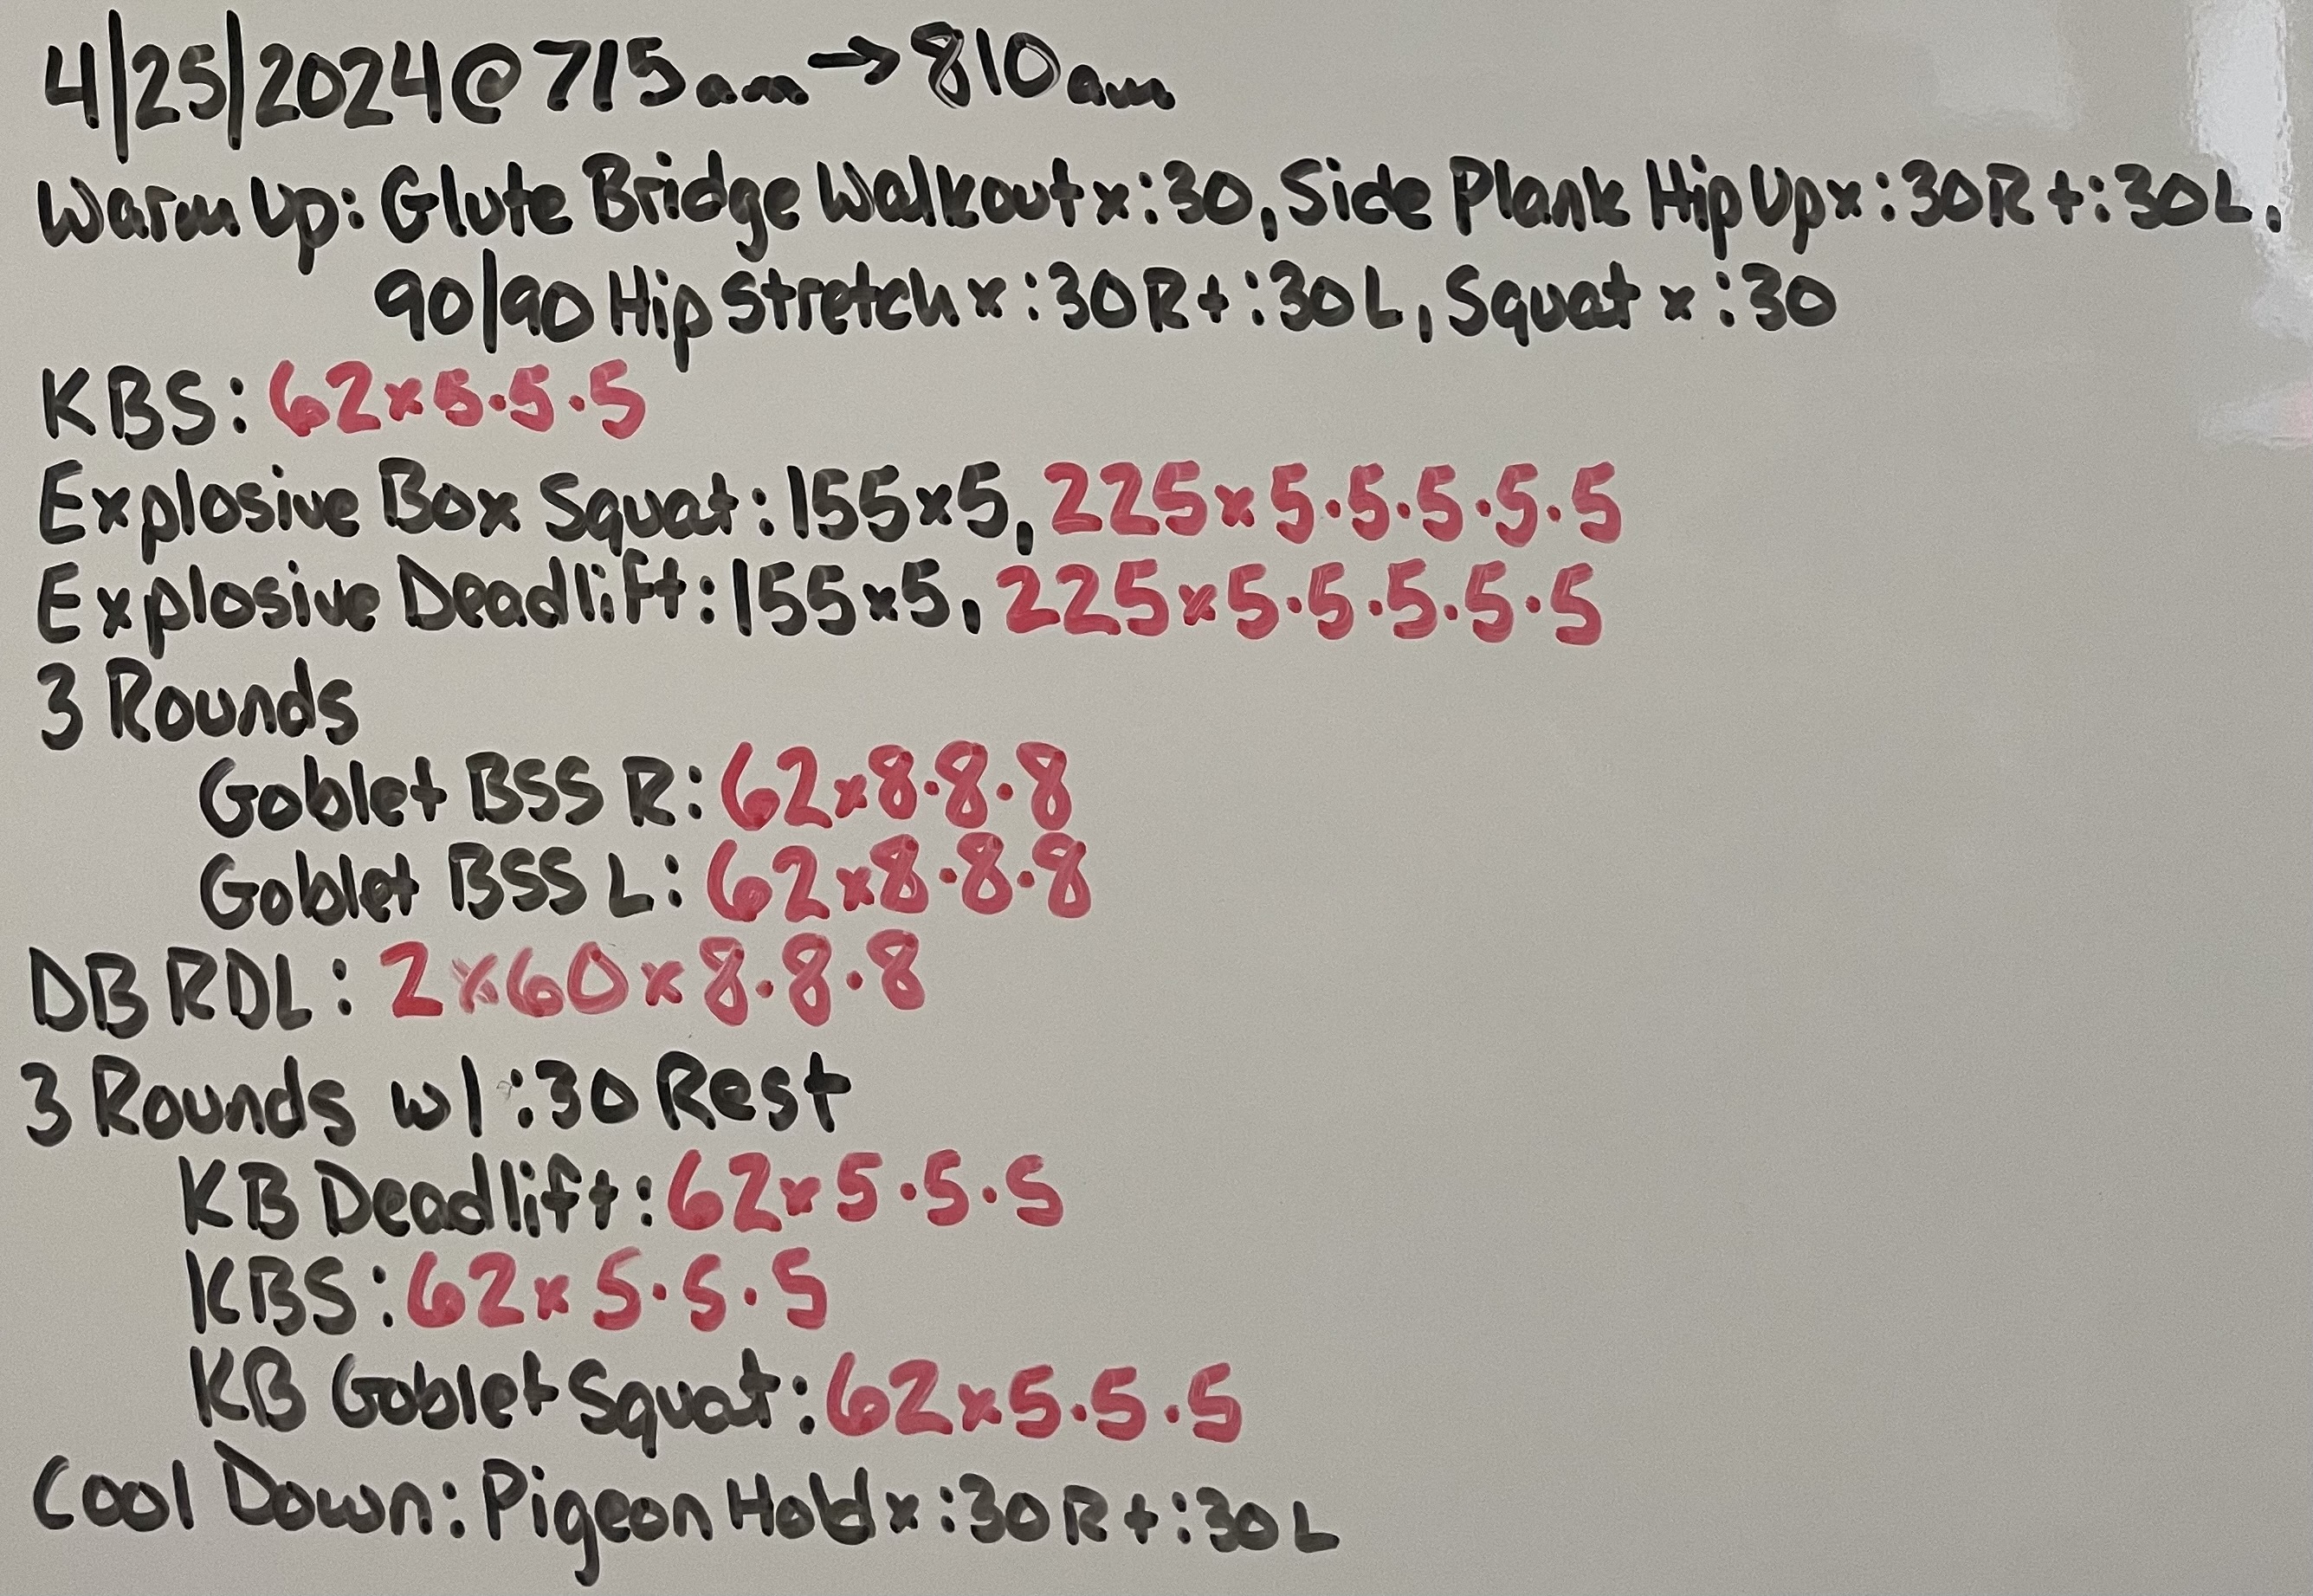 4/25/2024@715am→810am
Warm Up: Glute Bridge Walkout x :30, Side Plank Hip Up x :30R + :30L,
90/90 Hip Stretch x :30R + :30L, Squat x :30
KBS: 62x5·5·5
Explosive Box Squat: 155x5, 225x5·5·5·5·5
Explosive Deadlift: 155x5, 225x5·5·5·5·5
3 Rounds
Goblet BSS R: 62x8·8·8
Goblet BSS L: 62x8·8·8
DB RDL: 2x60x8·8·8
3 Rounds w/ :30 Rest
KB Deadlift: 62x5·5·5
KBS: 62x5·5·5
KB Goblet Squat: 62x5·5·5
Cool Down: Pigeon Hold x :30R + :30L